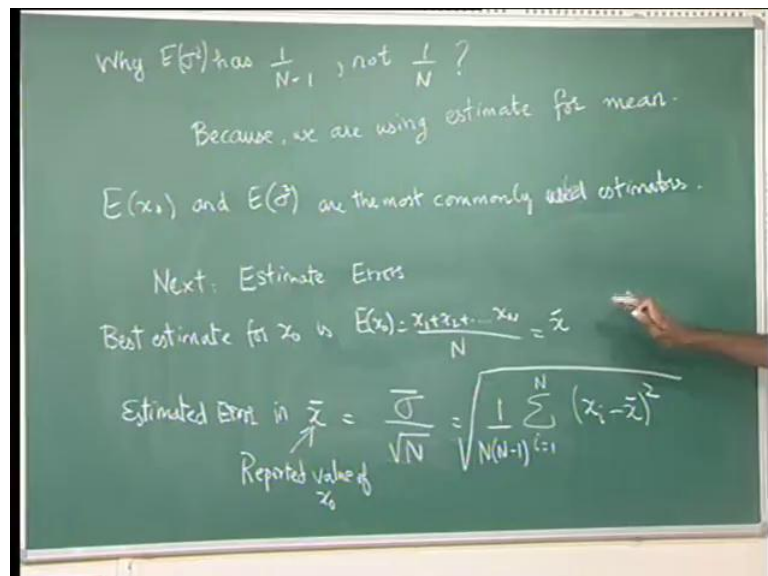 Why E(σ²) has 1/(N-1), not 1/N ?
Because, we are using estimate for mean.
E(x₀) and E(σ²) are the most commonly used estimators.
Next: Estimate Errors
Best estimate for x₀ is E(x₀) = (x₁+x₂+....x_N)/N = x̄
Estimated Error in x̄ = σ̄/√N = √(1/(N(N-1)) Σ_{i=1}^{N} (x_i - x̄)²)
Reported value of
x₀